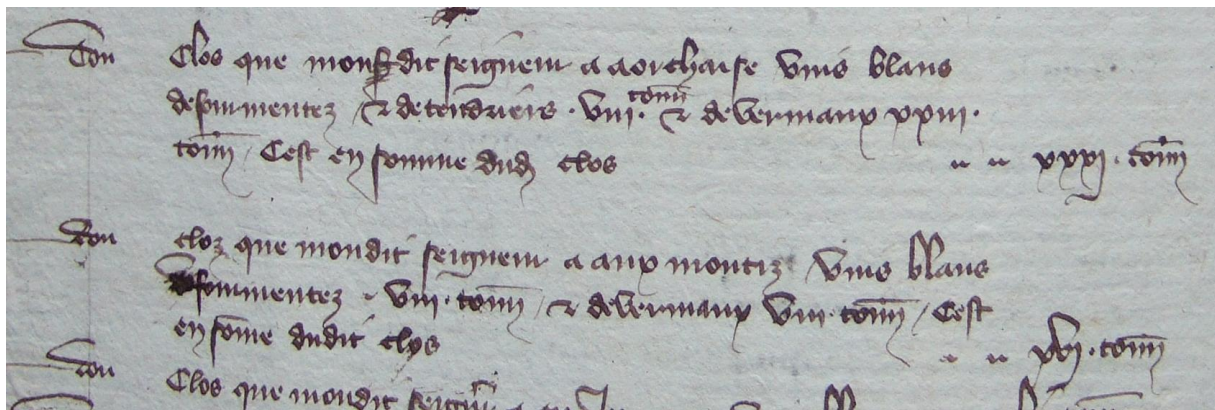 Dou Clos que monsdit seigneur a a orchaise vins blans
desirmentez & de tendriers . viii . tonn & de vermaux xxiii .
tonn / Cest en somme dud clos .. .. xxxi . tonn
Dou cloz que mondit seigneur a aux montiz vins blans
sirmentez . viii . tonn / & de vermaux viii . tonn / Cest
en some dudit clos .. .. xvi . tonn
Dou Clos que mondit seigneur a